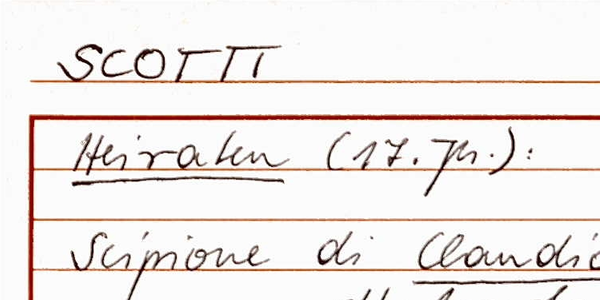 SCOTTI
Heiraten (17. Jh.):
Scipione di Claudio